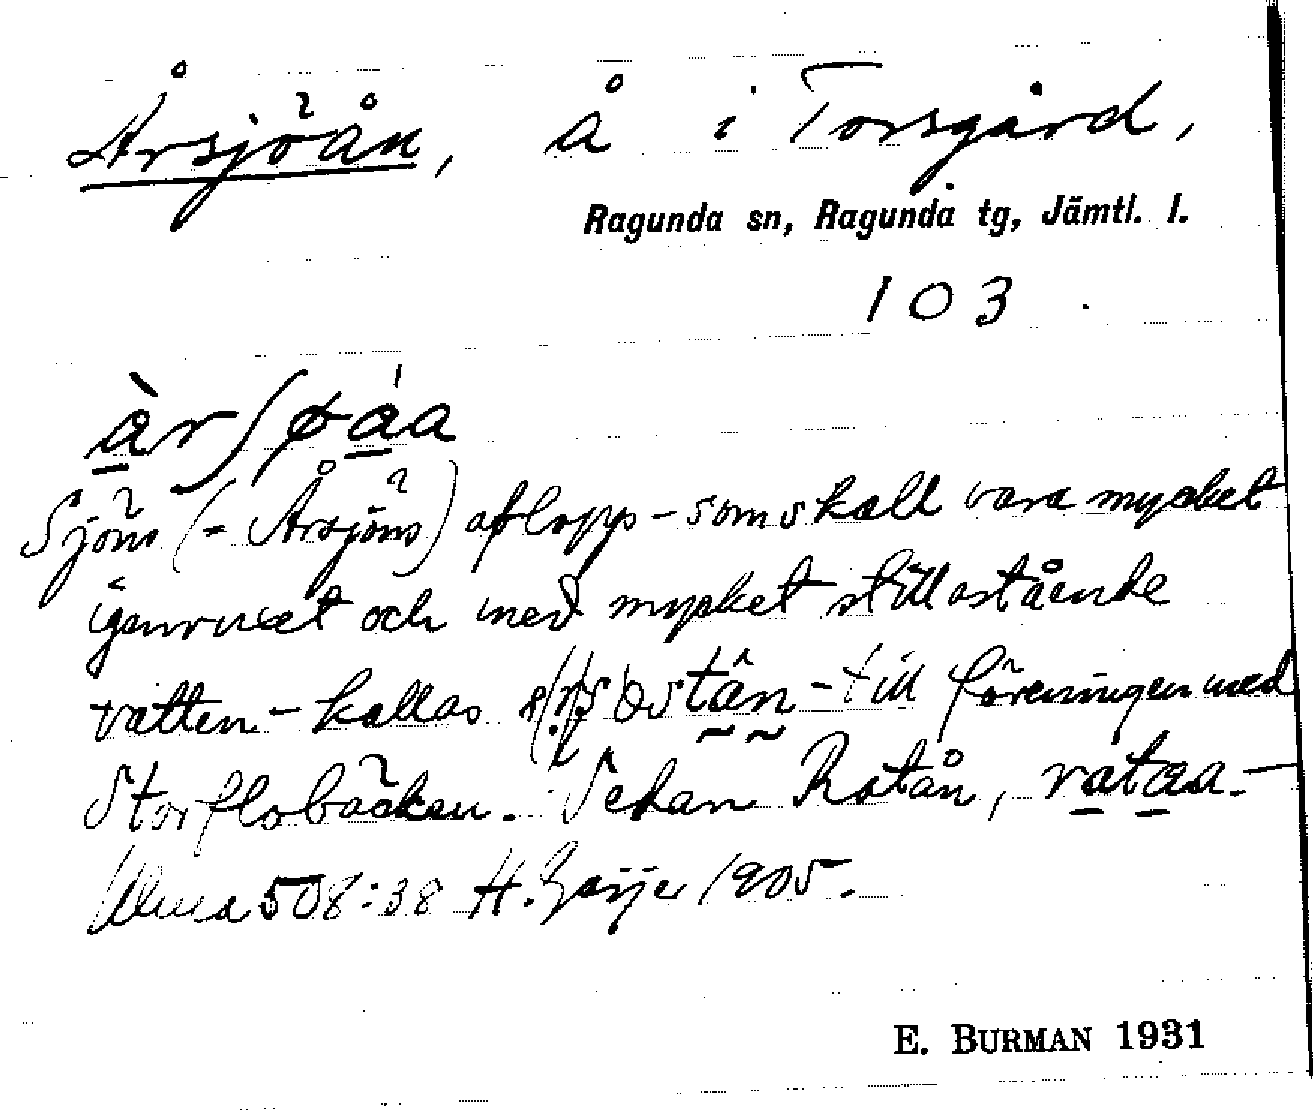 Årsjöån, å i Torsgård,
Ragunda sn, Ragunda tg, Jämtl. l.
103
àrʃøáa
Sjöns (= Årsjöns) aflopp - som skall vara mycket
igenvuxet och med mycket stillastående
vatten - kallas - till föreningen med
Storflobäcken. Sedan Rotån, rataa. -
Ulma 508:38 H. Geijer 1905.
E. BURMAN 1931